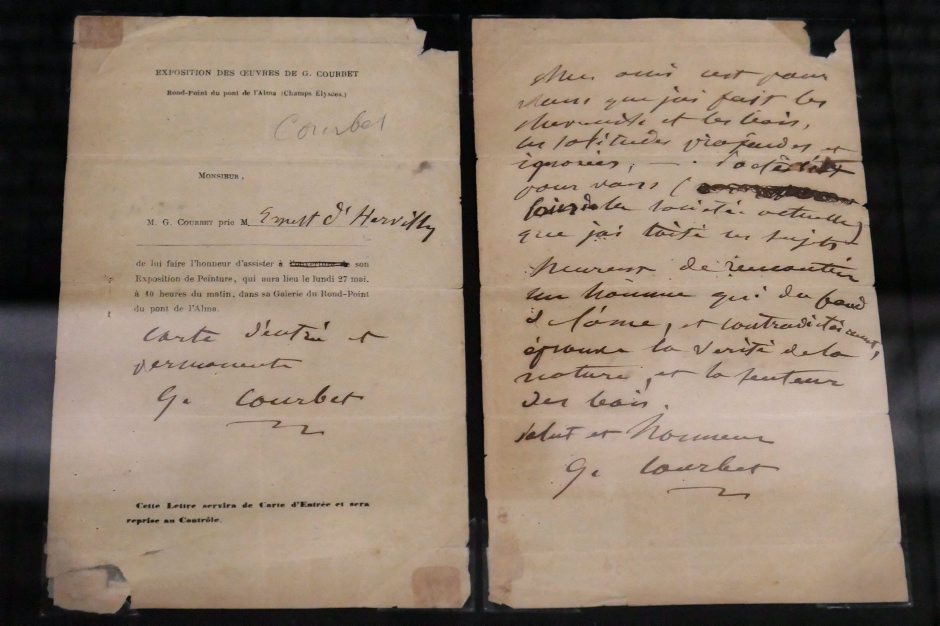 EXPOSITION DES ŒUVRES DE G. COURBET
Rond-Point du pont de l'Alma (Champs Élysées.)
Courbet
MONSIEUR,
M. G. COURBET prie M. Ernest d'Hervilly
de lui faire l'honneur d'assister à son
Exposition de Peinture, qui aura lieu le lundi 27 mai,
à 10 heures du matin, dans sa Galerie du Rond-Point
du pont de l'Alma.
Carte d'entré et
permanente
G. Courbet
Cette Lettre servira de Carte d'Entrée et sera
reprise au Contrôle.
Mes amis c'est pour
vous que j'ai fait les
chevreuils et les bois,
les solitudes profondes et
ignorées, —.
pour vous (
loin de la société actuelle)
que j'ai traité ces sujets
heureux de rencontrer
un homme qui du fond
d l'âme, et contradictoirement,
éprouve la verité de la
nature, et la senteur
des bois.
Salut et honneur
G. Courbet